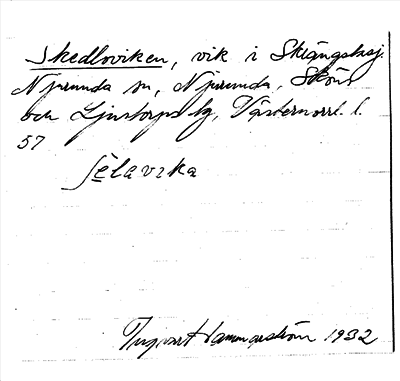 Skedloviken, vik i Stångstsj.
Njurunda sn, Njurunda, Sköns
och Ljustorps tg, Västernorrl. l.
57
ʃèlavɪka
Ingvar Hammarström 1932